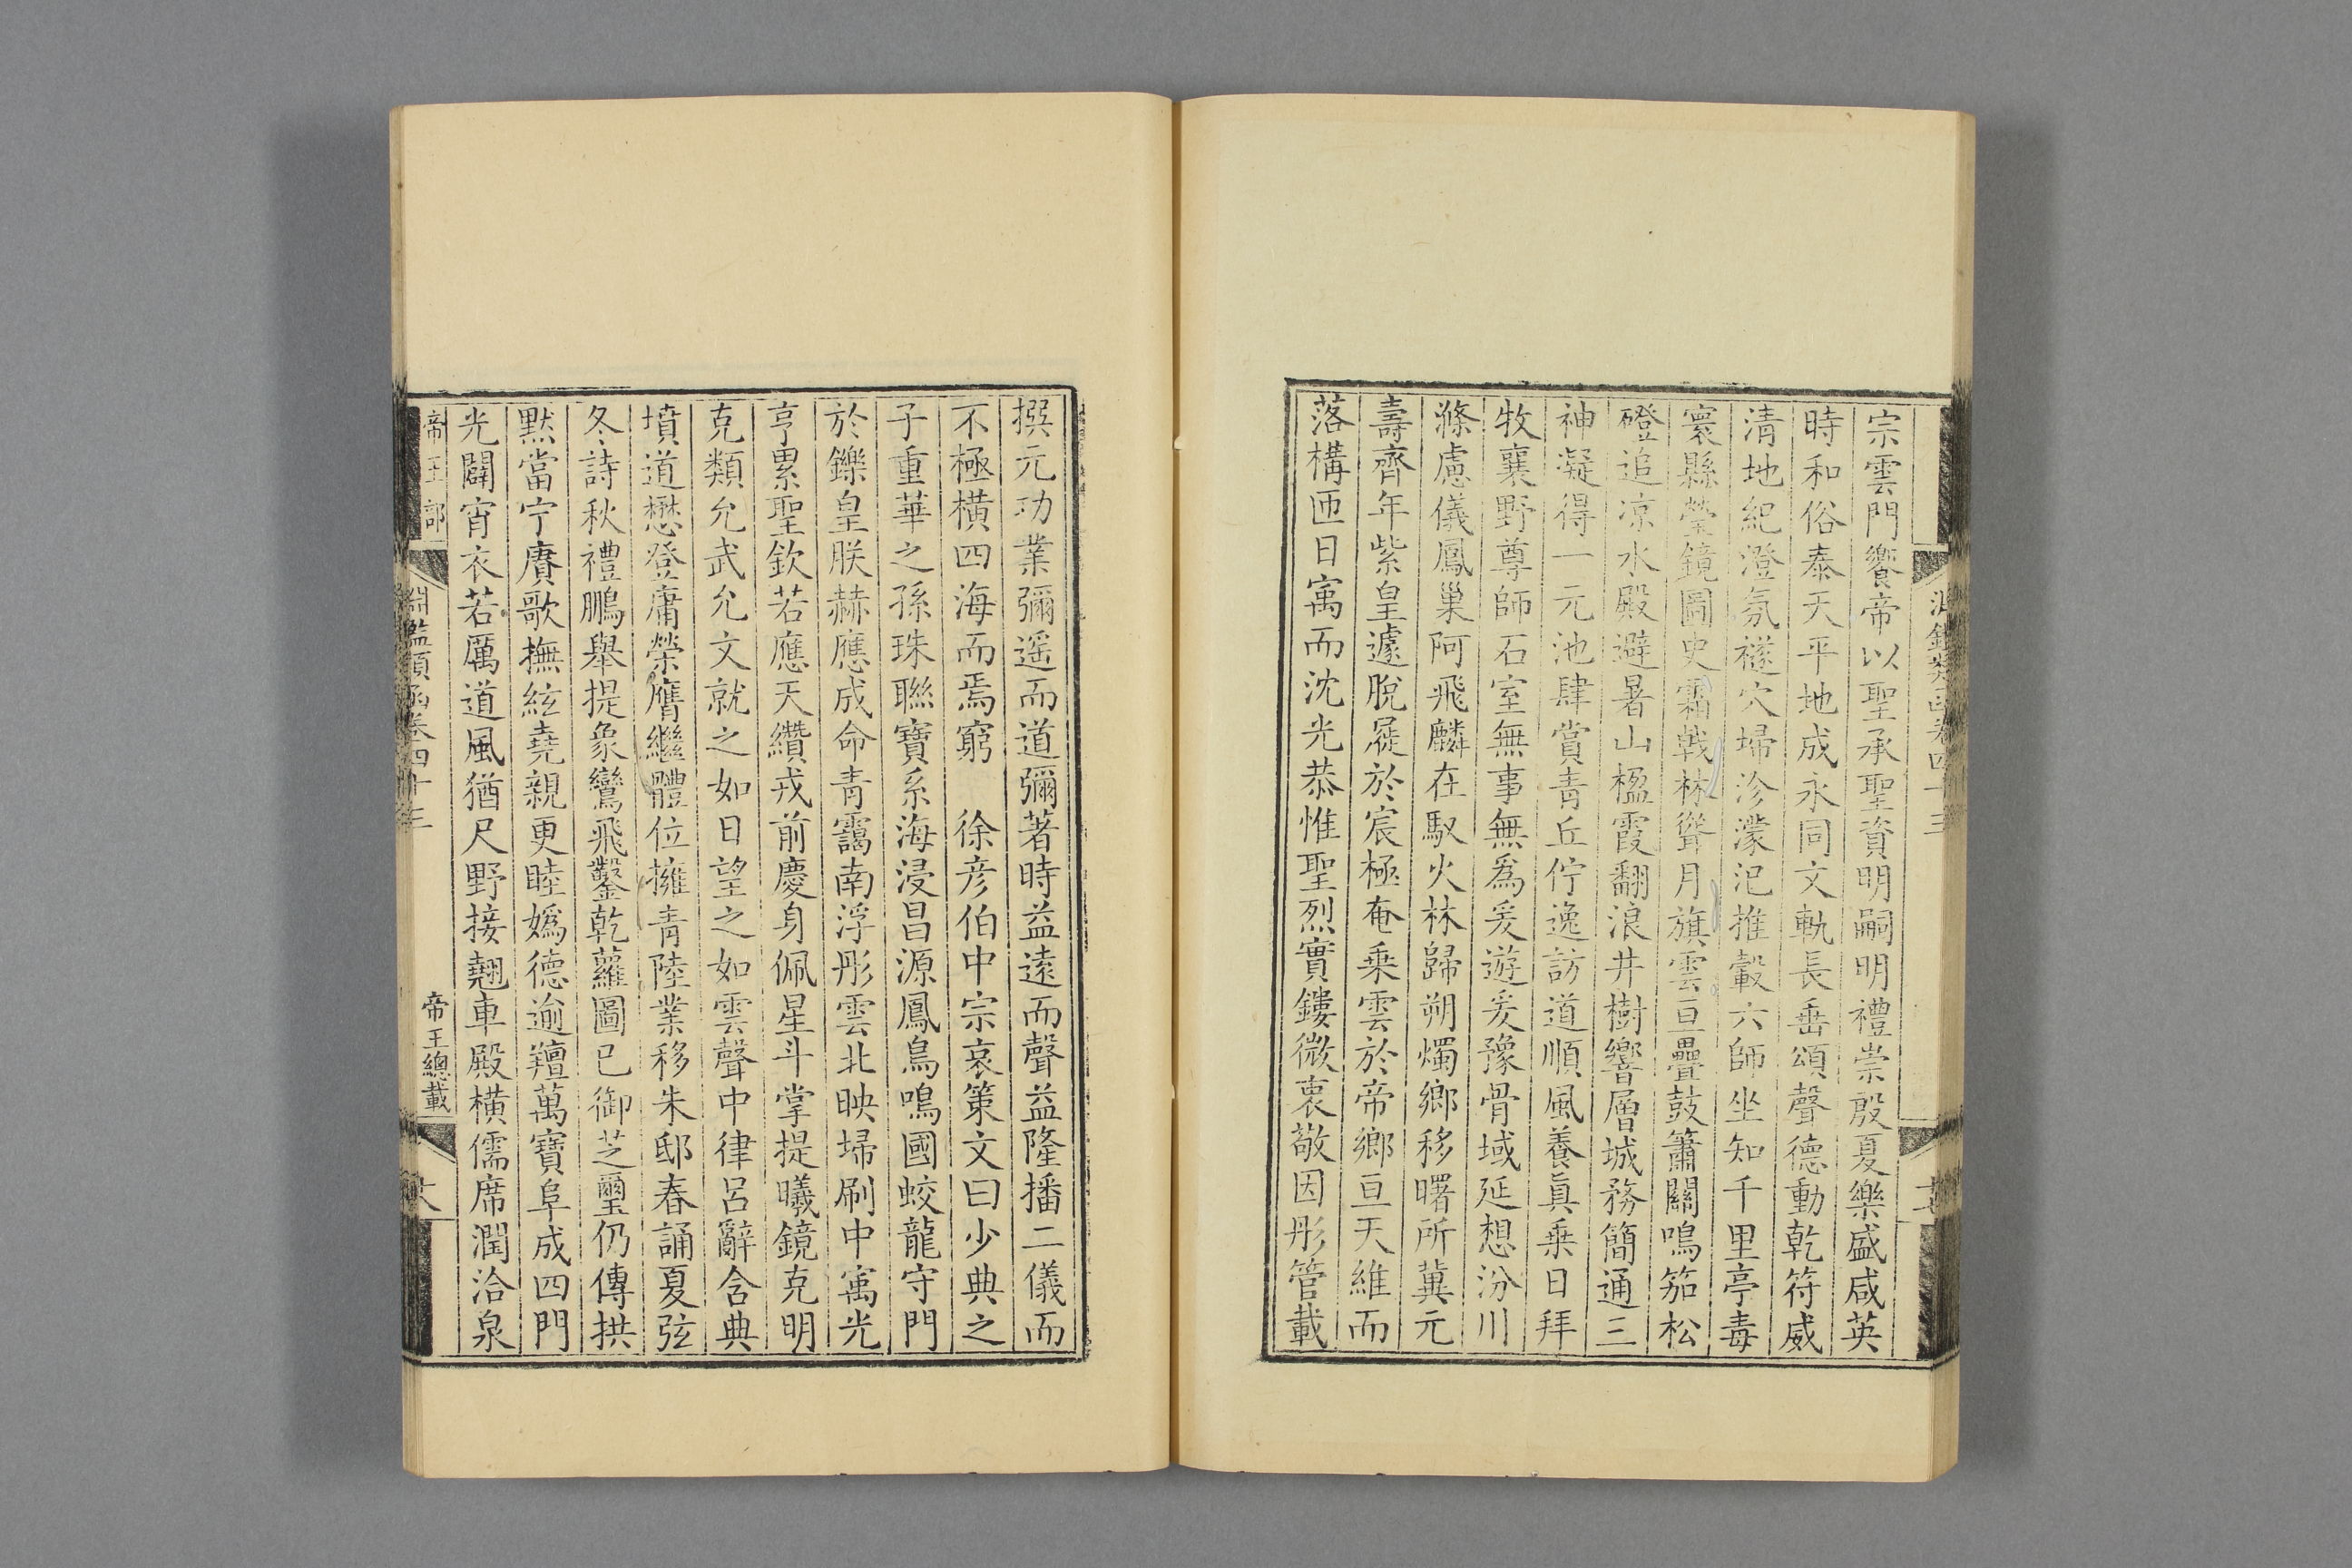 宗雲門饗帝以聖承聖資明嗣明禮崇殷夏樂盛咸英
時和俗泰天平地成永同文軌長垂頌聲德動乾符威
清地紀澄氛襚穴埽沴濛汜推轂六師坐知千里亭毒
寰縣瑩鏡圖史霜戟林聳月旗雲亘疊鼓簫關鳴笳松
磴追凉水殿避暑山楹霞翻浪井樹響層城務簡通三
神凝得一元池肆賞青丘佇逸訪道順風養眞乗日拜
牧襄野尊師石室無事無爲爰遊爰豫骨域延想汾川
滌慮儀鳳巢阿飛麟在馭火林歸朔燭鄉移曙所冀元
壽齊年紫皇遽脫屣於宸極奄乗雲於帝鄉亘天維而
落構匝日㝢而沈光恭惟聖烈實鏤微衷敬因彤管載
撰元功業彌遥而道彌著時益遠而聲益隆播二儀而
不極橫四海而焉窮 徐彦伯中宗哀策文曰少典之
子重華之孫珠聯寶系海浸昌源鳳鳥鳴國蛟龍守門
於鑠皇朕赫應成命青靄南浮彤雲北映埽刷中㝢光
亨累聖欽若應天纘戎前慶身佩星斗掌提曦鏡克明
克類允武允文就之如日望之如雲聲中律呂辭含典
墳道懋登庸榮膺繼體位擁青陸業移朱邸春誦夏弦
冬詩秋禮鵬舉提象鸞飛鑿乾蘿圖已御芝璽仍傳拱
默當宁賡歌撫絃堯親更睦嬀德逾羶萬寶阜成四門
光闢宵衣若厲道風猶尺野接翹車殿橫儒席潤洽泉
帝王部
淵鑑類函卷四十三
帝王總載